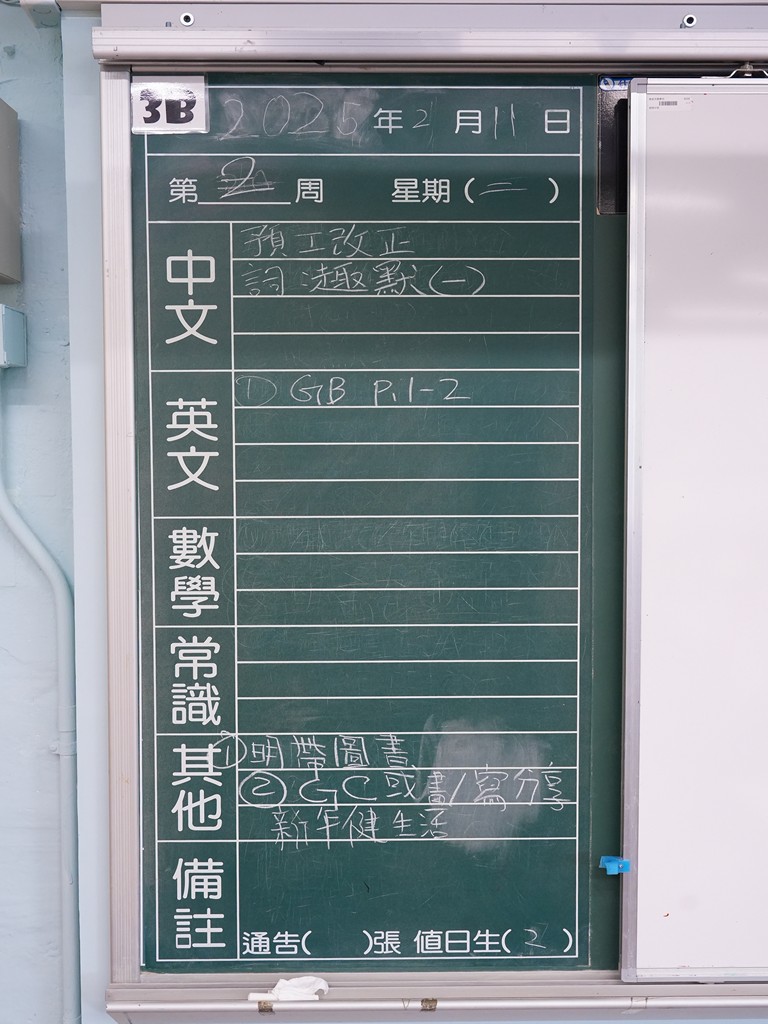 3B
2025年2月11日
第2周 星期(二)
中文
預工改正
詞:趣默(一)
英文
① GB P.1-2
數學
常識
其他
①明帶圖書
②GC或畫/寫分享
新年健生活
備註
通告( )張 值日生(2)